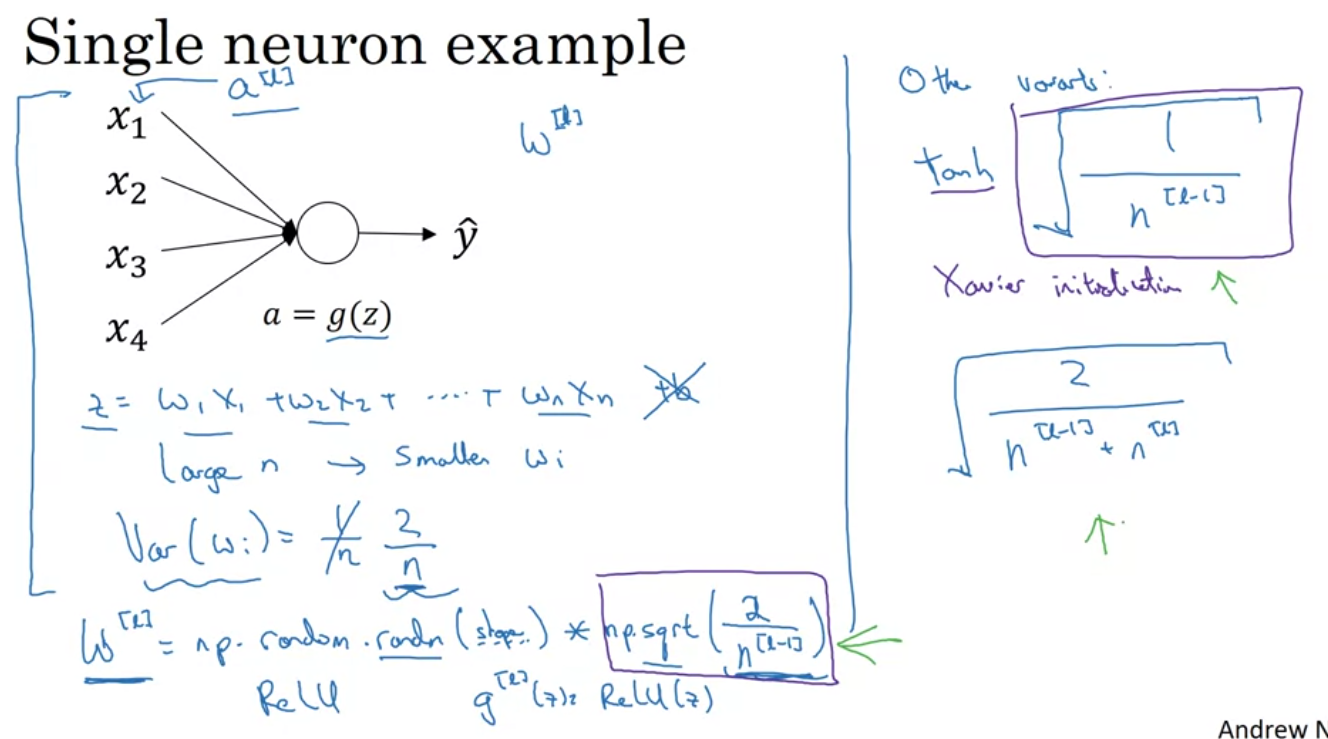 Single neuron example
a^[l]
x₁
x₂
x₃
x₄
ŷ
a = g(z)
w^[l]
z = w₁x₁ + w₂x₂ + ... + wₙxₙ +b
Large n → Smaller wᵢ
Var(wᵢ) = 1/n 2/n
W^[l] = np.random.randn(shape) * np.sqrt(2/n^[l-1])
ReLU g^[l](z) = ReLU(z)
Other variants:
tanh √(1/n^[l-1])
Xavier initialization
√(2/(n^[l-1] + n^[l]))
Andrew N